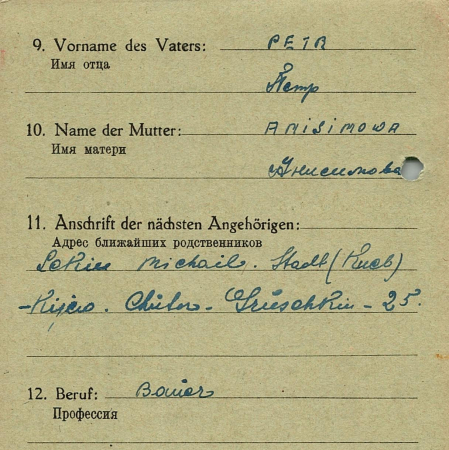 9. Vorname des Vaters: PETR
Имя отца
Петр
10. Name der Mutter: ANISIMOWA
Имя матери
Анисимова
11. Anschrift der nächsten Angehörigen:
Адрес ближайших родственников
Michail. Stadt (Kueb)
Chutor - Gruschkin - 25.
12. Beruf: Bauer
Профессия